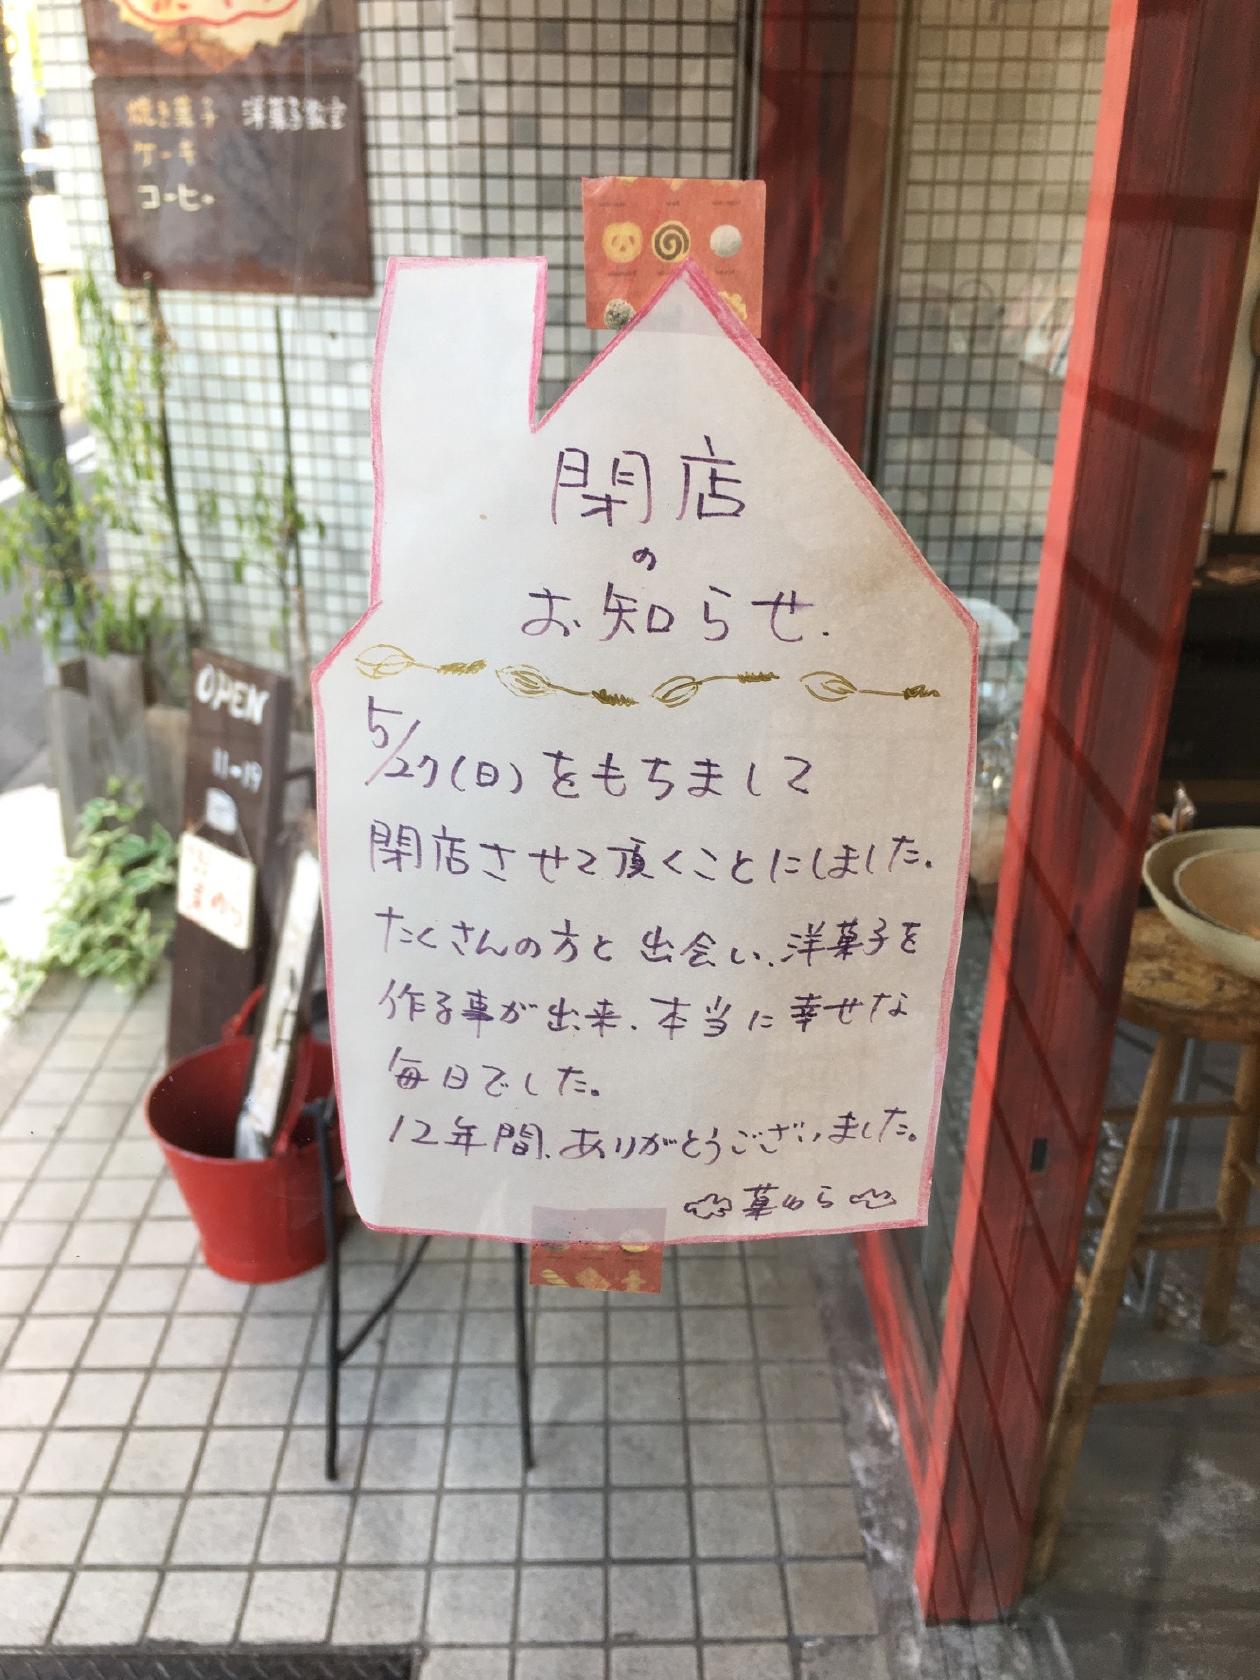 焼き菓子 洋菓子教室
ケーキ
コーヒー
閉店
の
お知らせ.
5/27(日)をもちまして
閉店させて頂くことにしました。
たくさんの方と出会い、洋菓子を
作る事が出来、本当に幸せな
毎日でした。
12年間、ありがとうございました。
菓わら
OPEN
11-19